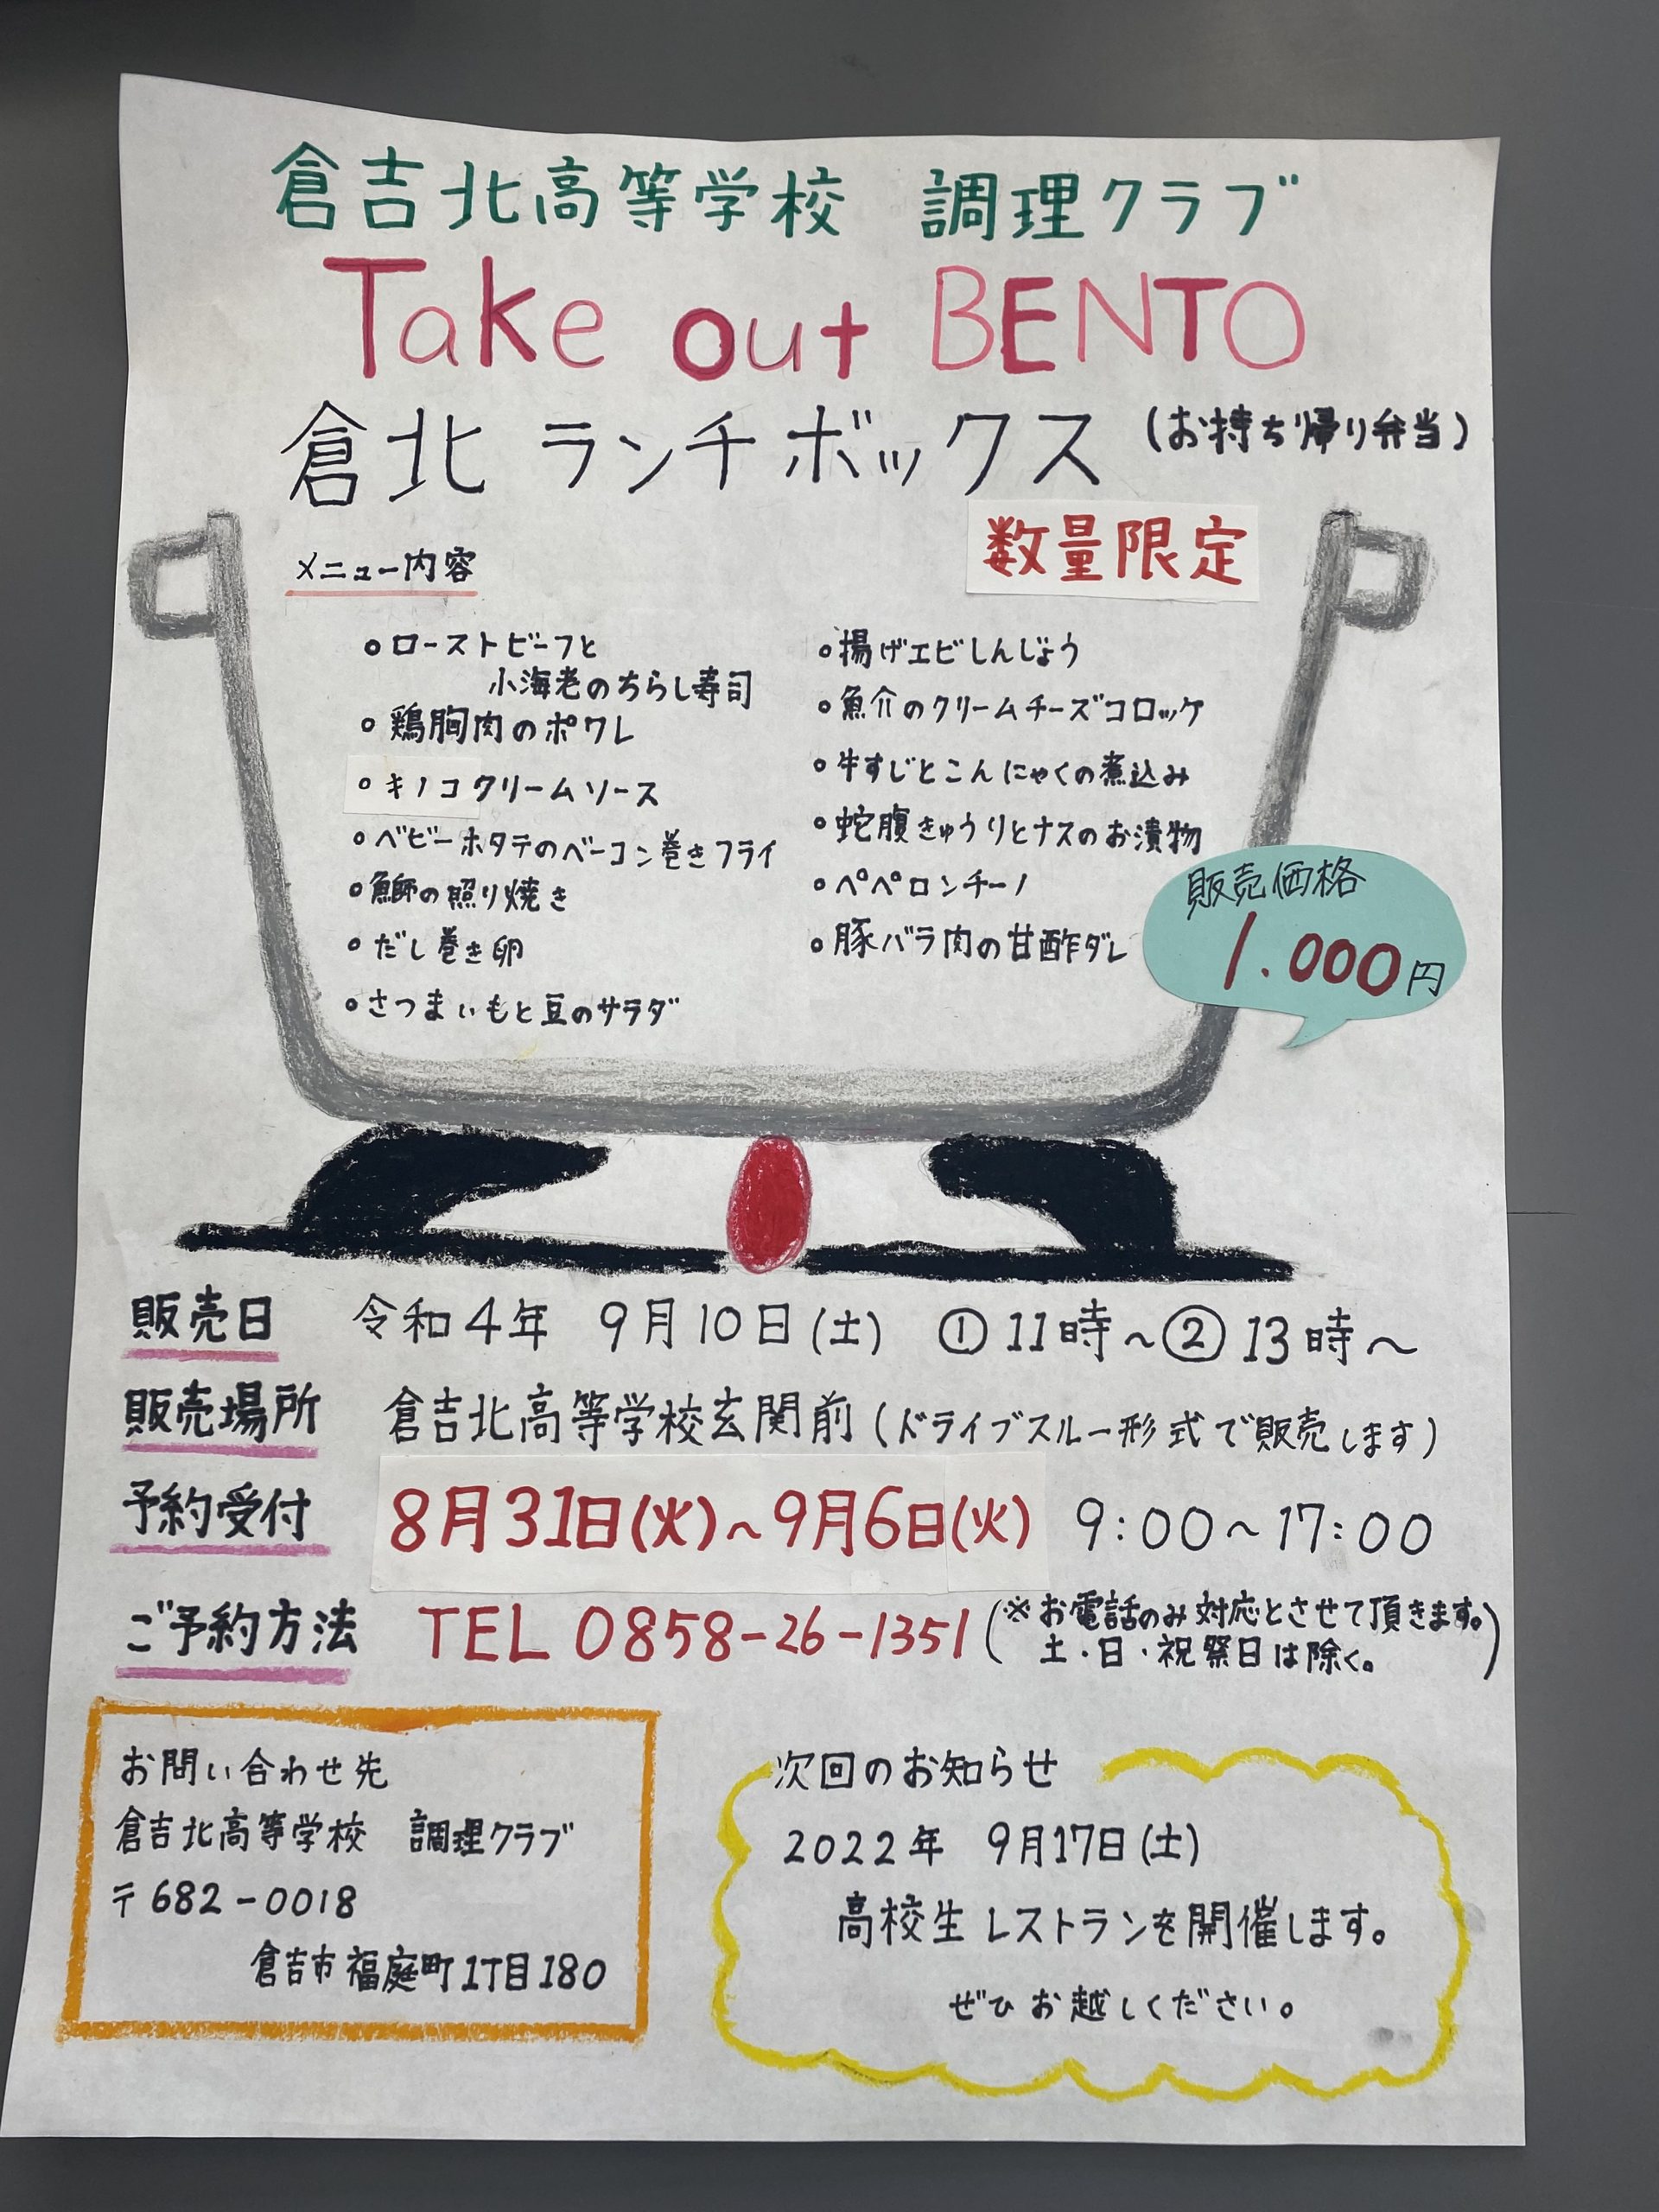 倉吉北高等学校 調理クラブ
Take out BENTO
倉北 ランチボックス (お持ち帰り弁当)
数量限定
メニュー内容
○ローストビーフと
小海老のちらし寿司
○鶏胸肉のポワレ
○キノコクリームソース
○ベビーホタテのベーコン巻きフライ
○鰤の照り焼き
○だし巻き卵
○さつまいもと豆のサラダ
○揚げエビしんじょう
○魚介のクリームチーズコロッケ
○牛すじとこんにゃくの煮込み
○蛇腹きゅうりとナスのお漬物
○ペペロンチーノ
○豚バラ肉の甘酢ダレ
販売価格
1.000円
販売日 令和4年 9月10日(土) ①11時~②13時~
販売場所 倉吉北高等学校玄関前(ドライブスルー形式で販売します)
予約受付 8月31日(火)~9月6日(火) 9:00~17:00
ご予約方法 TEL 0858-26-1351 (※お電話のみ対応とさせて頂きます。
土・日・祝祭日は除く。)
お問い合わせ先
倉吉北高等学校 調理クラブ
〒682-0018
倉吉市福庭町1丁目180
次回のお知らせ
2022年 9月17日(土)
高校生レストランを開催します。
ぜひお越しください。